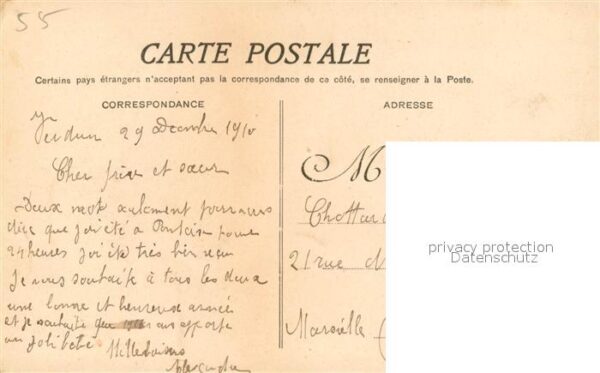 55
CARTE POSTALE
Certains pays étrangers n'acceptant pas la correspondance de ce côté, se renseigner à la Poste.
CORRESPONDANCE
ADRESSE
Verdun 29 Decembre 1910
Cher frère et sœur
Deux mots seulement pour vous
dire que j'ai été à Pontoise pour
24 heures j'ai été très bien reçu
Je vous souhaite à tous les deux
une bonne et heureuse année
et je souhaite que vous apporte
un joli bébé Mille baisers
Alexandre
M
Chottar
21 rue
Marseille
privacy protection
Datenschutz